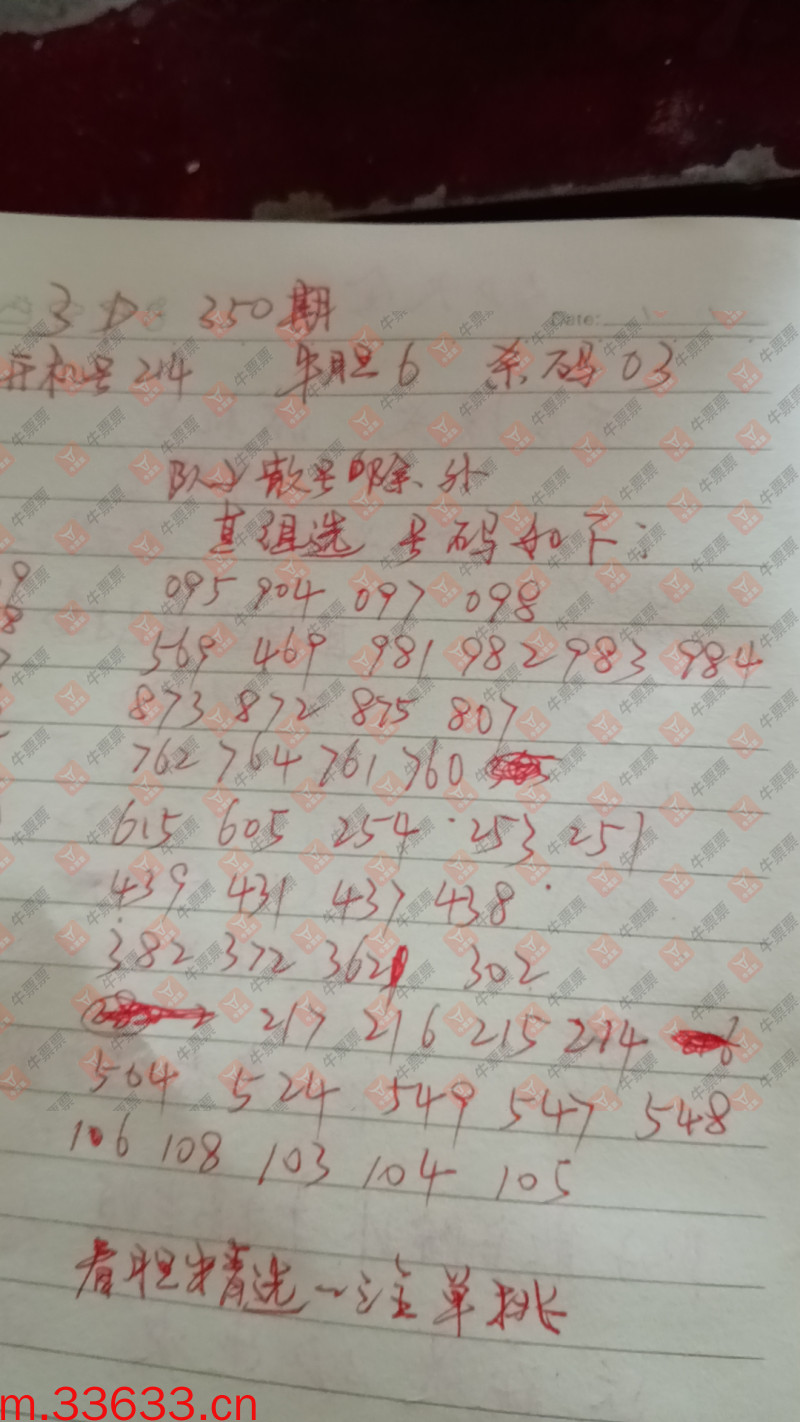 3D 350期
Date:
开机号214 单胆6 杀码03
以上散号即除外
其组选号码如下:
095 904 097 098
569 469 981 982 983 984
873 872 875 807
762 764 761 760
615 605 254 253 251
439 431 437 438
382 372 362 302
217 216 215 214
504 524 549 547 548
106 108 103 104 105
看胆来精选一注单挑
牛票票
m.33633.cn